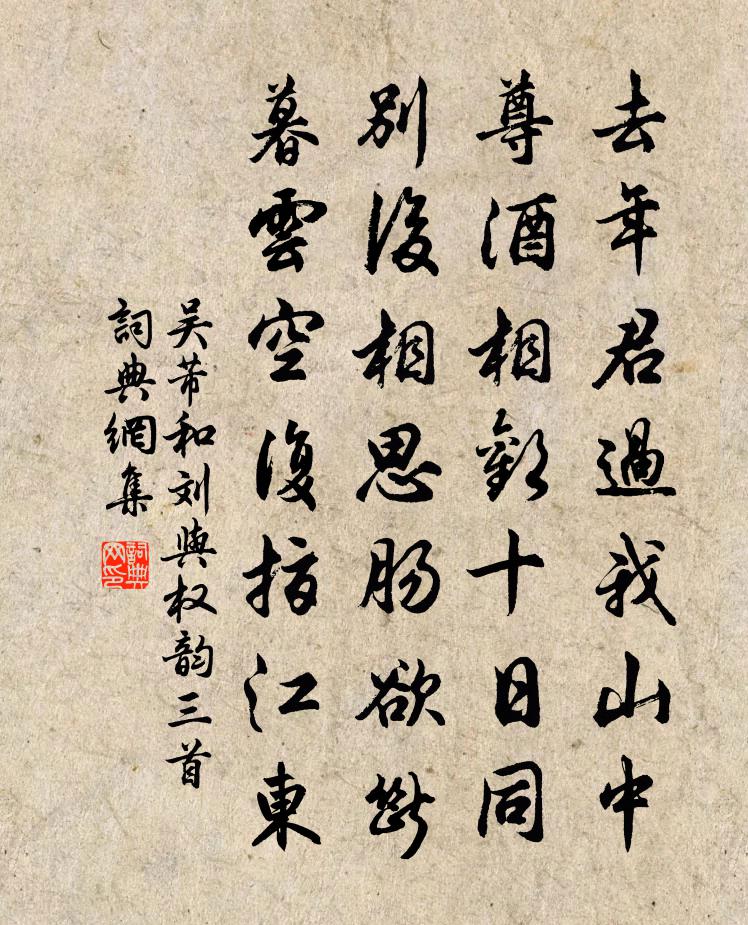 去年君過我山中
尊酒相歡十日同
別後相思腸欲斷
暮雲空復指江東
吴芾和刘與权韵三首
詞典網集
詞典网印